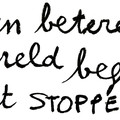 n betere
reld beg
t STOPPE